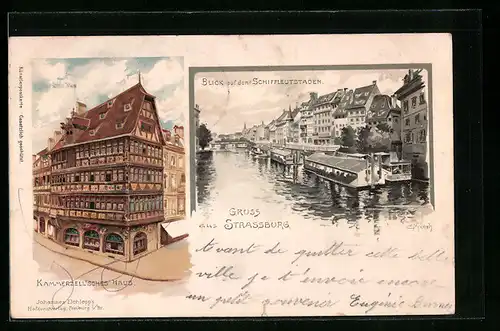 Künstlerpostkarte Gesetzlich geschützt.
BLICK auf den SCHIFFLEUTSTADEN.
GRUSS
aus STRASSBURG.
KAMMERZELL'SCHES HAUS
Johannes Elchlepp's
Hofkunstverlag, Freiburg i/Br.
Avant de quitter cette belle
ville je t'envoie encore
un petit souvenir Eugénie